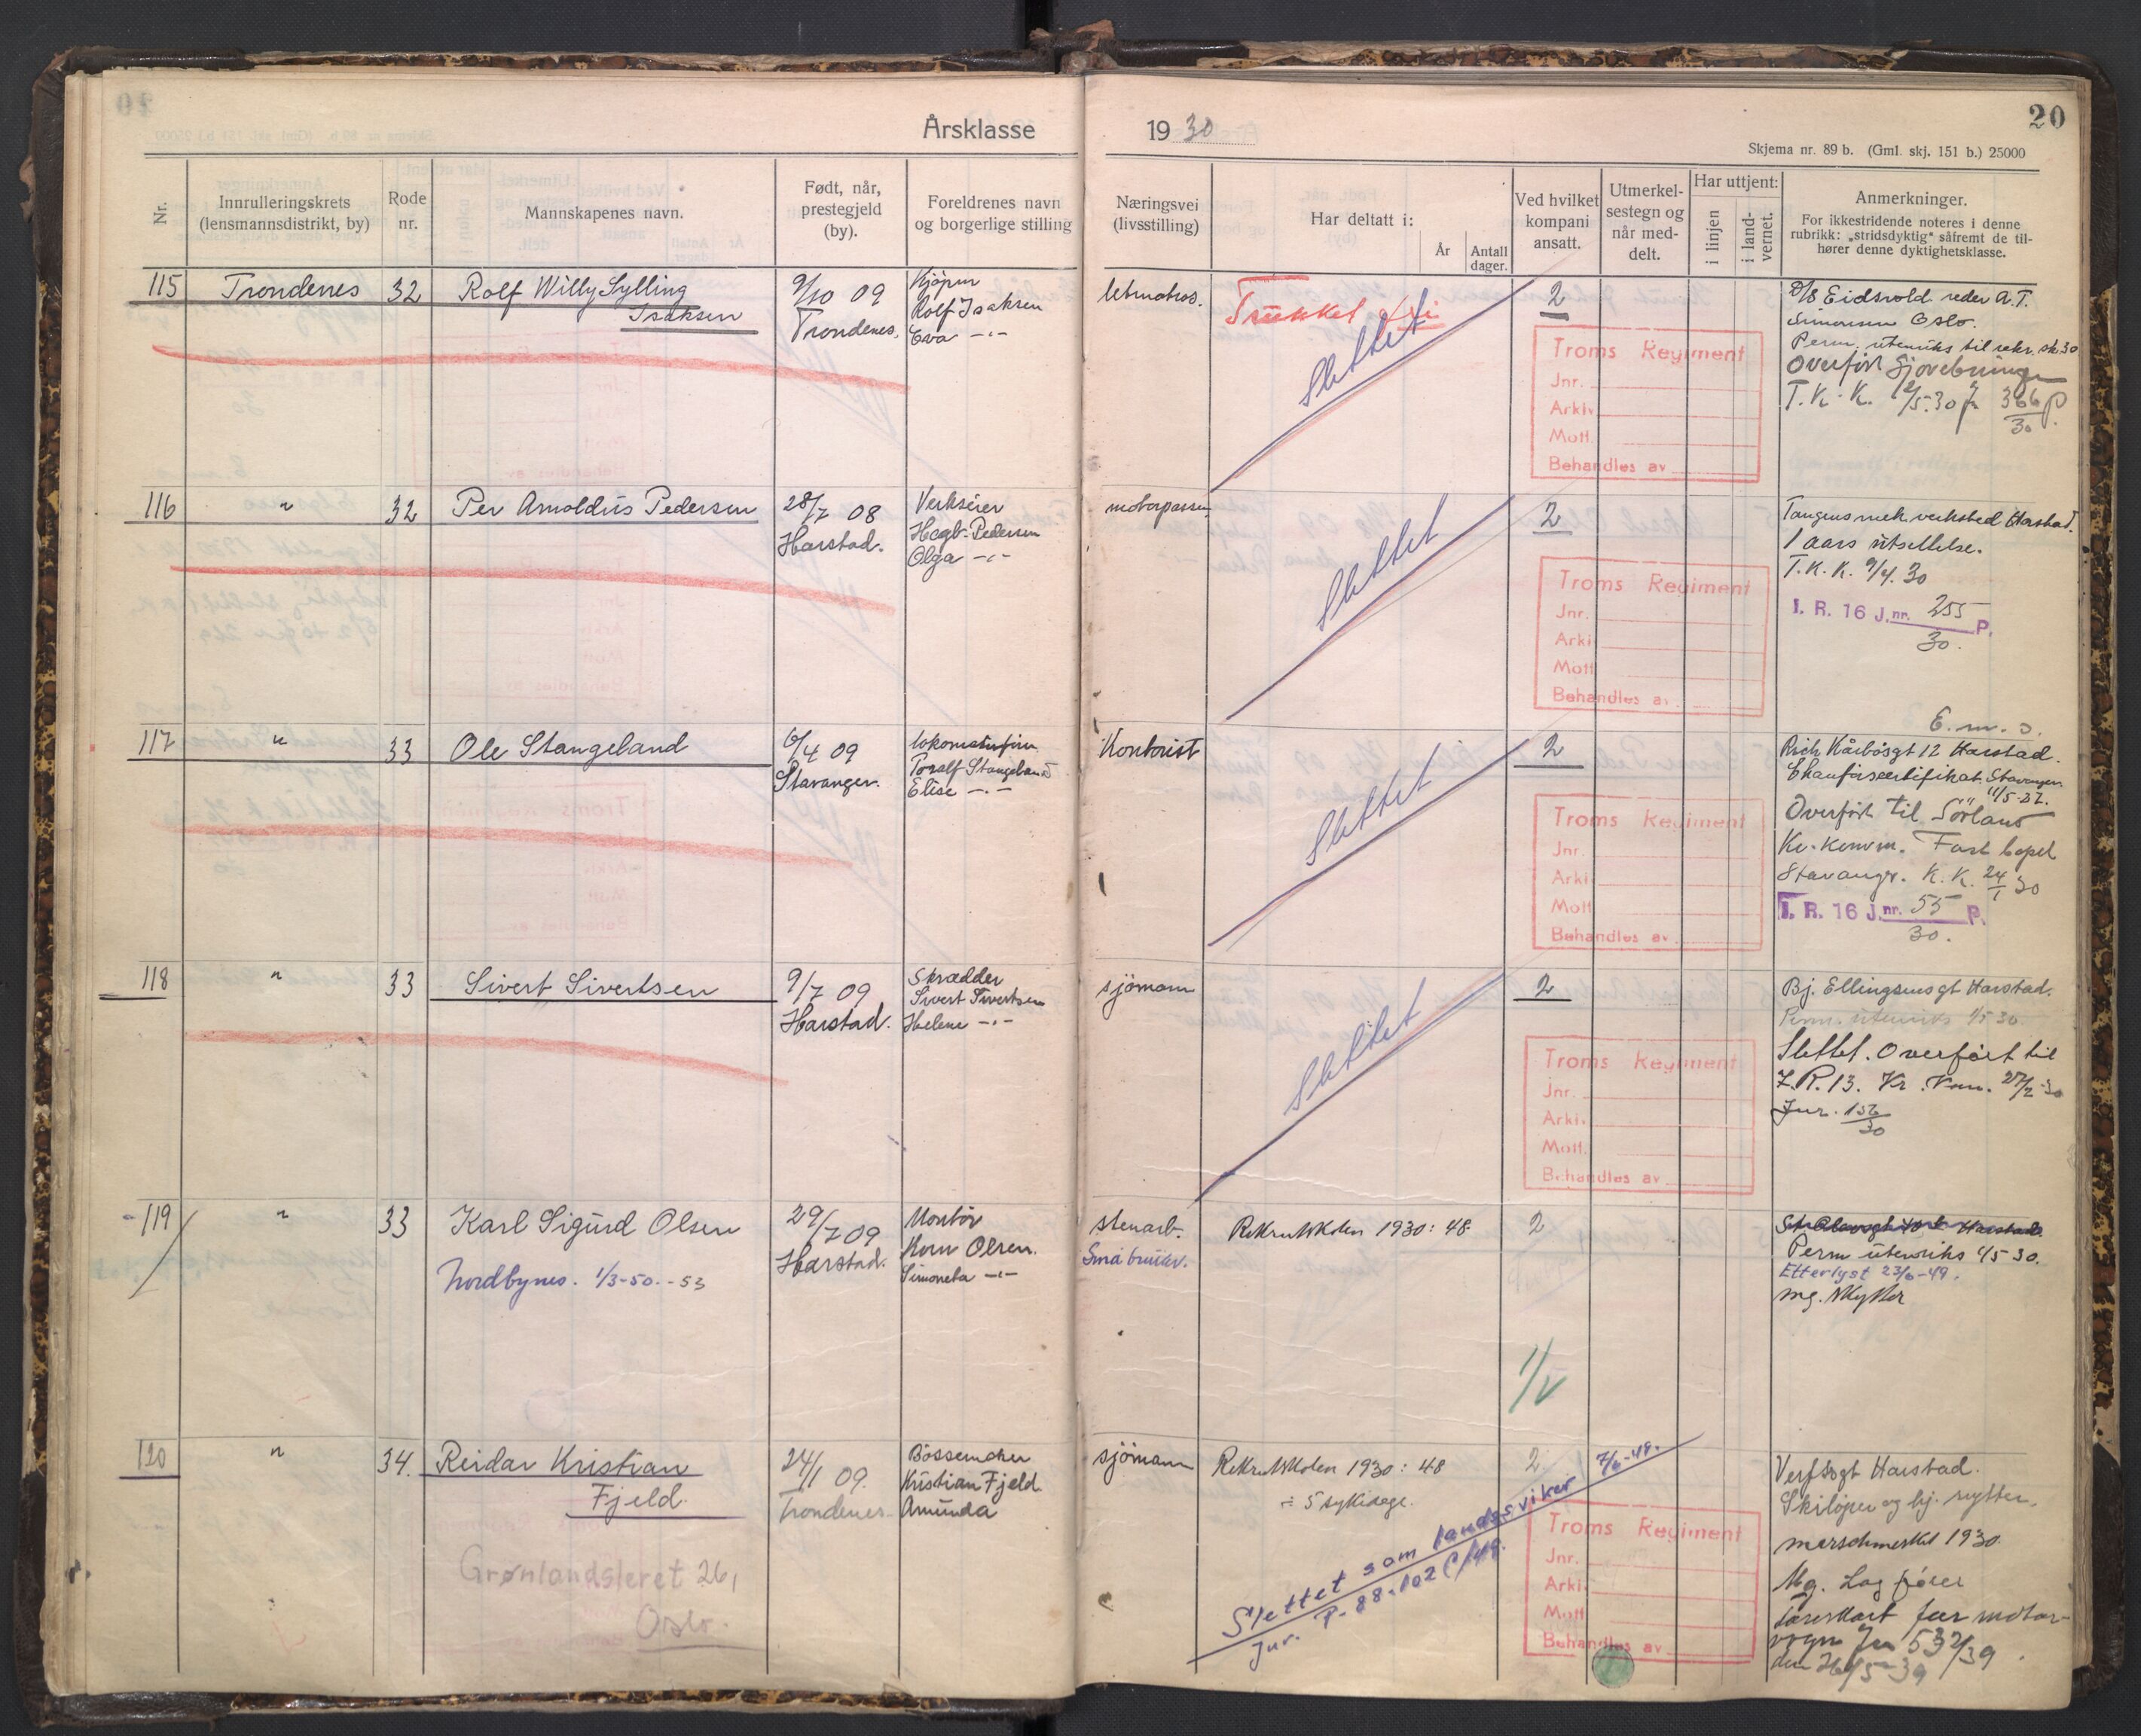 20
Årsklasse 1930
Skjema nr. 89 b. (Gml. skj. 151 b.) 25000
Nr.
Innrulleringskrets
(lensmannsdistrikt, by)
Rode
nr.
Mannskapenes navn.
Født, når,
prestegjeld
(by).
Foreldrenes navn
og borgerlige stilling
Næringsvei
(livsstilling)
Har deltatt i:
År
Antall
dager.
Ved hvilket
kompani
ansatt.
Utmerkel-
sestegn og
når med-
delt.
Har uttjent:
i linjen
i land-
vernet.
Anmerkninger.
For ikkestridende noteres i denne
rubrikk: „stridsdyktig“ såfremt de til-
hører denne dyktighetsklasse.
115 Trondenes 32 Rolf Willy Sylling
Isaksen
9/10 09
Trondenes.
Kjöpm
Rolf Isaksen
Eva -"-
letmatros.
Trukket fri
Slettet
2
Troms Regiment
Jnr.
Arkiv
Mott.
Behandles av
D/S Eidsvold reder A.T.
Simonsen Oslo.
Perm. utenriks til rekr. sk. 30
Overfört Sjøvebningen
T. K. K. 2/5.30 J 366 P.
30
116 " 32 Per Arnoldus Pedersen
28/7 08
Harstad.
Verkseier
Hagb. Pedersen
Olga -"-
motorpasser
Slettet
2
Troms Regiment
Jnr.
Arki
Mott
Behandles av
Tangens mek. verksted Harstad.
1 aars utsettelse.
T. K. K. 9/4.30
I. R. 16 J.nr. 255 P.
30.
117 " 33 Ole Stangeland
6/4 09
Stavanger.
Toralf Stangeland
Elise -"-
Kontorist
Slettet
2
Troms Regiment
Jnr.
Arki
Mott
Behandles av
E. m. s.
Rich Kårbösgt 12 Harstad.
Chauförsertifikat Stavanger
11/5-27.
Overfört til Sörland
Kr. komm. Fast bopel
Stavanger. K. K. 24/1 30
I. R. 16 J.nr. 55 P.
30.
118 " 33 Sivert Sivertsen
9/7 09
Harstad.
Skrædder
Sivert Sivertsen
Helene -"-
sjömann
Slettet
2
Troms Regiment
Jnr.
Arki.
Mott.
Behandles av
Bj. Ellingsensgt Harstad.
Perm. utenriks 1/5 30
Slettet. Overfört til
I. R. 13. Kr. Kom. 27/2-30
Jnr. 156
30
119 " 33 Karl Sigurd Olsen
Nordbynes. 1/3-50.-53
29/7 09
Harstad.
Montör
Olsen.
-"-
stenarb.
Småbruker.
Rekruttskolen 1930: 48
2
1/V
Harstad
Perm utenriks 1/5 30.
Etterlyst 23/6-49.
mg. skytter
120 " 34. Reidar Kristian
Fjeld
Grønlandsleret 26,
Oslo.
24/1 09.
Trondenes
Bössemaker
Kristian Fjeld
Amunda
sjömann
Rekruttskolen 1930: 48
÷ 5 sykedage.
Slettet som landssviker 7/6-49.
Jnr. P-88-102 C/49.
2
Troms Regiment
Jnr.
Arki
Mott
Behandles av
Verftsgt Harstad.
Skilöper og hj. rytter.
marschmerket 1930.
Mg. Lagförer
förerkort for motor-
vogn Jn 532/39